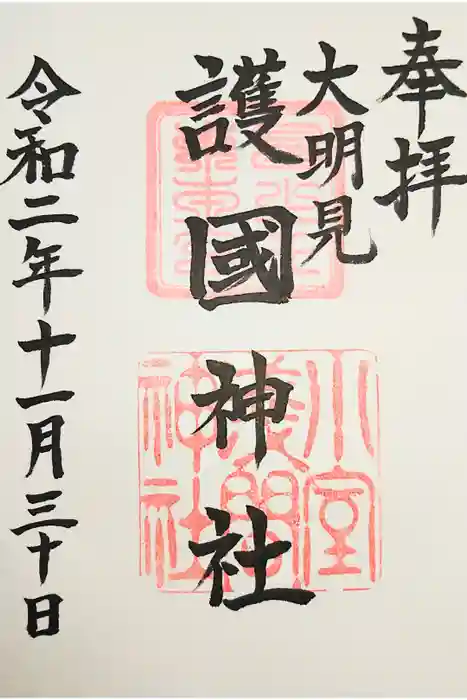 奉拝
大明見
護國神社
令和二年十一月三十日
小室
淺間
神社